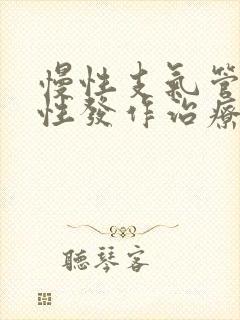 慢性支氣管
性發作治療
聽琴客